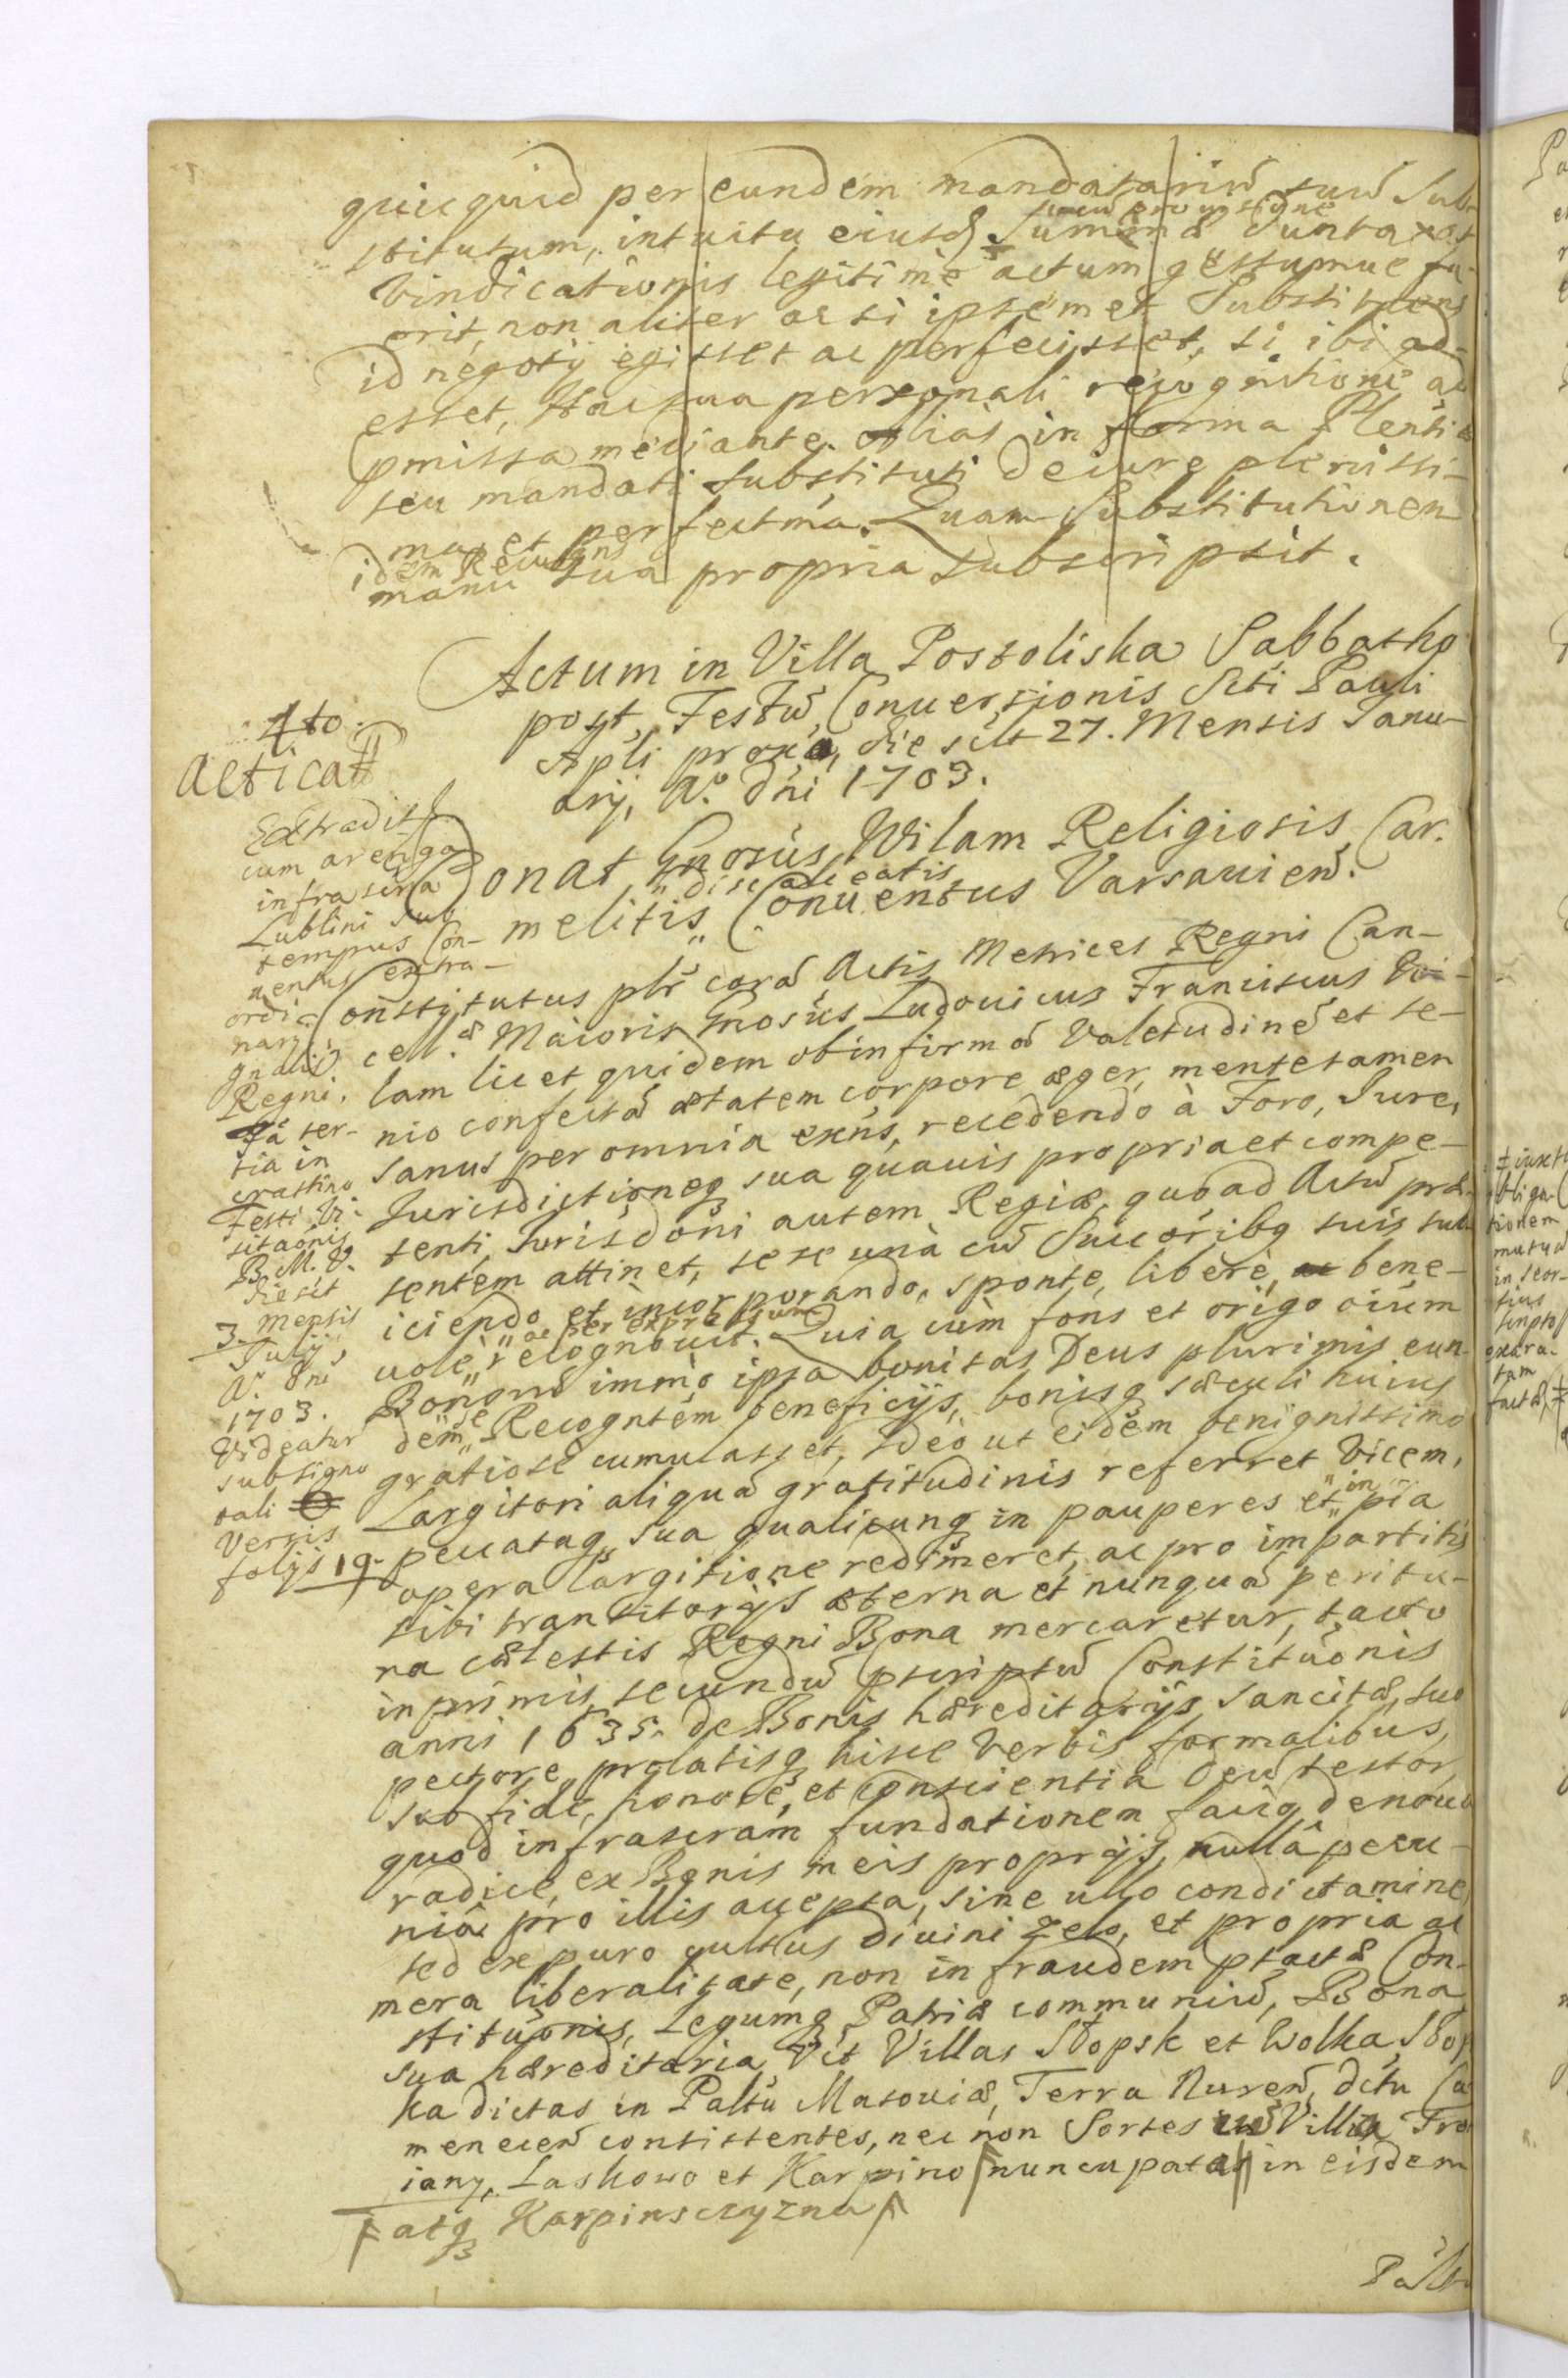 quicquid per eundem mandatariū suū Sub-
stitutum, intuitu eiusd Summæ duntaxat
cum provisione
vindicationis legitime actum gestumue fu-
erit, non aliter ac si ipsemet Substituens
id negotÿ egisset ac perfecisset, si ibi ad-
esset, Hac sua personali recognitione ad
pmissa mediante. alias in forma Plentiæ
seu mandati substituti de iure plenissi-
ma et perfectma. Quam Substitutionem
idem Recognens
manu sua propria subscripsit.
Actum in Villa Postoliska Sabbatho
post Festū Conuersionis Scti Pauli
Apli proxa, die scilt 27. Mensis Janu-
arÿ, Ao. dni 1703.
4to.
Acticat
Extradit
cum arenga
infrascra
Lublini sub
tempus Con-
uentus extra-
ordi-
narÿ
gnalis
Regni.
Fa ter-
tia in
crastino
Festi Vi-
sitaonis
B. M. V.
die scit
3. mensis
Julÿ,
Ao. Dni
1703.
Videatur
sub signo
tali
versis
folÿs 19.
Donat Gnosus Wilam Religiosis Car-
melitis „ Conuentus Varsauien.
„ discalceatis
Constitutus plr corā Actis Metrices Regni Can-
cell.æ Maioris Gnosus Ludouicus Franciscus Wi-
lam licet quidem ob infirmā Valetudinē et se-
nio confectā ætatem corpore æger, mente tamen
sanus per omnia exns, recedendo à Foro, Jure,
Jurisdictioneq sua quauis propria et compe-
tenti, Jurisdoni autem Regiæ, quo ad Actū præ-
sentem attinet, se se unà cū Succoribq suis sub-
iciendo et incorporando, sponte, liberè, ac bene-
uolè „ recognouit. Quia cùm fons et origo oium
„ ac per expressum
Bonorū immò ipsa bonitas Deus plurimis eun-
dem „ Recogntem beneficÿs, bonisq sæculi huius
se
gratiosè cumulasset, ideò ut eidem benignissimo
Largitori aliquā gratitudinis referret Vicem,
peccataq sua qualicunq in pauperes et „ pia
in
opera largitione redimeret, ac pro impartitis
sibi transitorÿs æterna et nunquā peritu-
ra cælestis Regni Bona mercaretur, tacto
inprimis secundū pscriptū Constituonis
anni 1635. de Bonis hæreditarÿs sancitæ, suo
pectore, prolatisq hisce verbis formalibus,
sub fide, honore, et conscientia Deū testor,
quod infrascram fundationem facio, denouo
radice, ex Bonis meis proprÿs, nullâ pecu-
niâ pro illis accepta, sine ullo condictamine,
sed ex puro cultus diuini zelo, et propria ac
mera liberalitate, non in fraudem ptactæ Con-
stituonis, Legumq Patriæ communiū, Bona
sua hæreditaria Vit Villas Słopsk et Wolka Słop
ka dictas in Paltu Masouiæ, Terra Nuren, dctu Ca
menecen consistentes, nec non Sortes in Villa Tro
iany, Laskowo et Karpino nuncupatas in eisdem
atq Karpinsczyzna
Palt
‡ iuxta
obliga-
tionem
mutuā
in seor-
tius
scripto
exara-
tam
factæ,